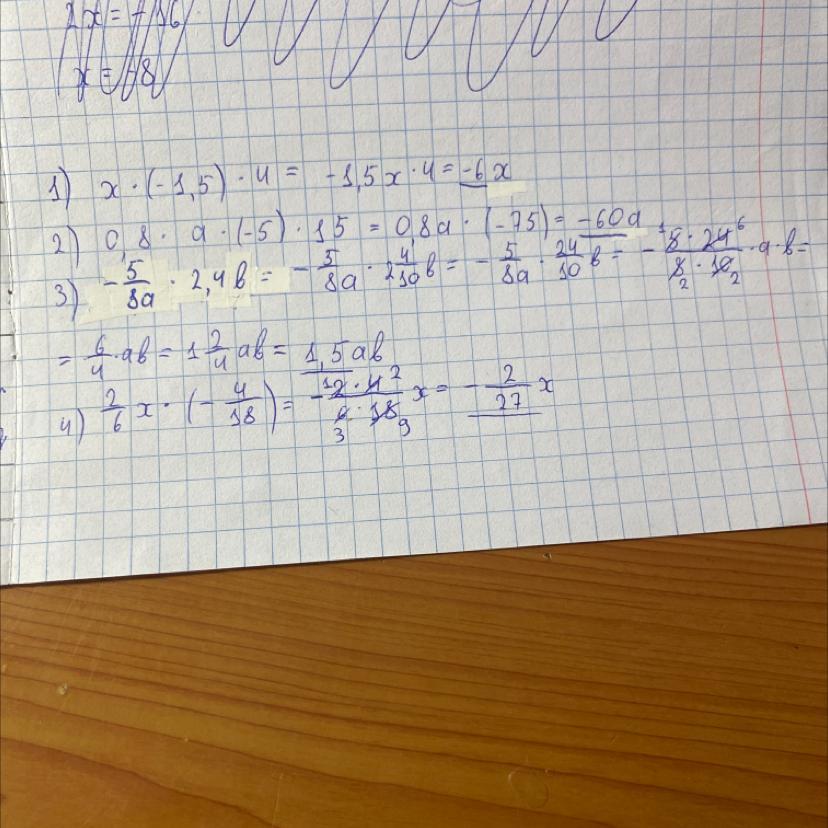 2x = -16
x = -8
1) x · (-1,5) · 4 = -1,5x · 4 = -6x
2) 0,8 · a · (-5) · 15 = 0,8a · (-75) = -60a
3) -5/8a · 2,4b = -5/8a · 2 4/10 b = -5/8a · 24/10 b = - 1 5 · 24 6 / 8 2 · 10 2 · a · b =
= 6/4 · ab = 1 2/4 ab = 1,5ab
4) 2/6 x · (-4/18) = - 1 2 · 4 2 / 6 3 · 18 9 x = -2/27 x